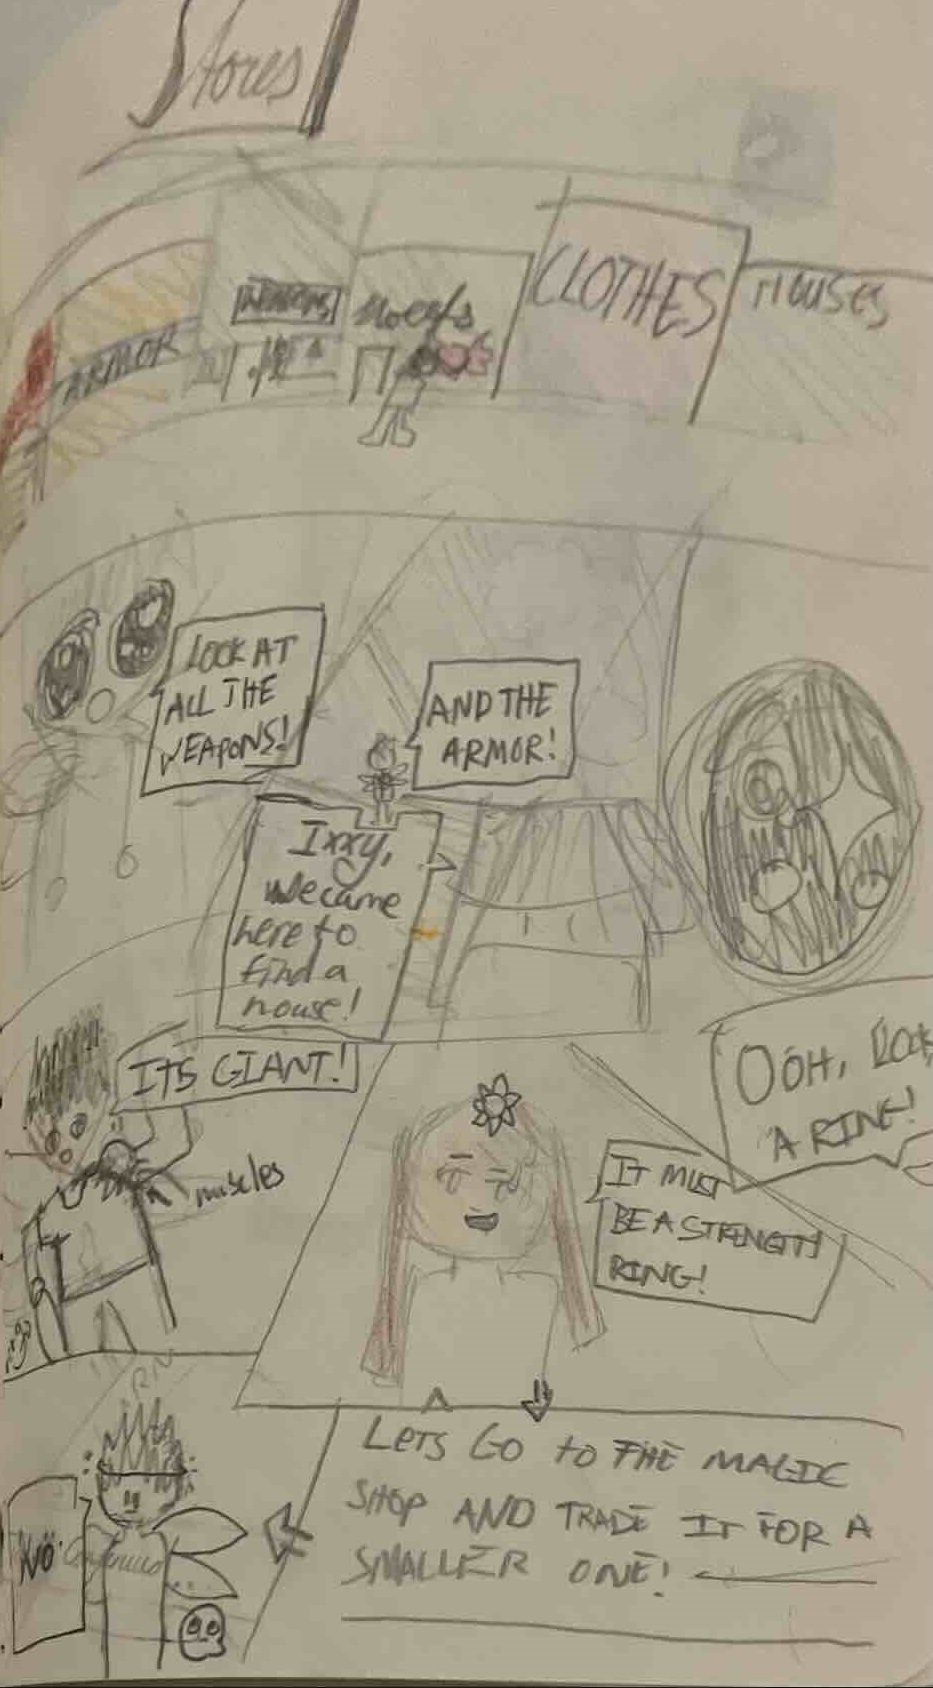 Stores
ARMOR
WEAPONS
CLOTHES
HOUSES
LOOK AT
ALL THE
WEAPONS!
AND THE
ARMOR!
Ixxy,
we came
here to
find a
house!
ITS GIANT!
muscles
OOH, LOOK
A RING!
IT MUST
BE A STRENGTH
RING!
LETS GO to THE MAGIC
SHOP AND TRADE IT FOR A
SMALLER ONE!
NO